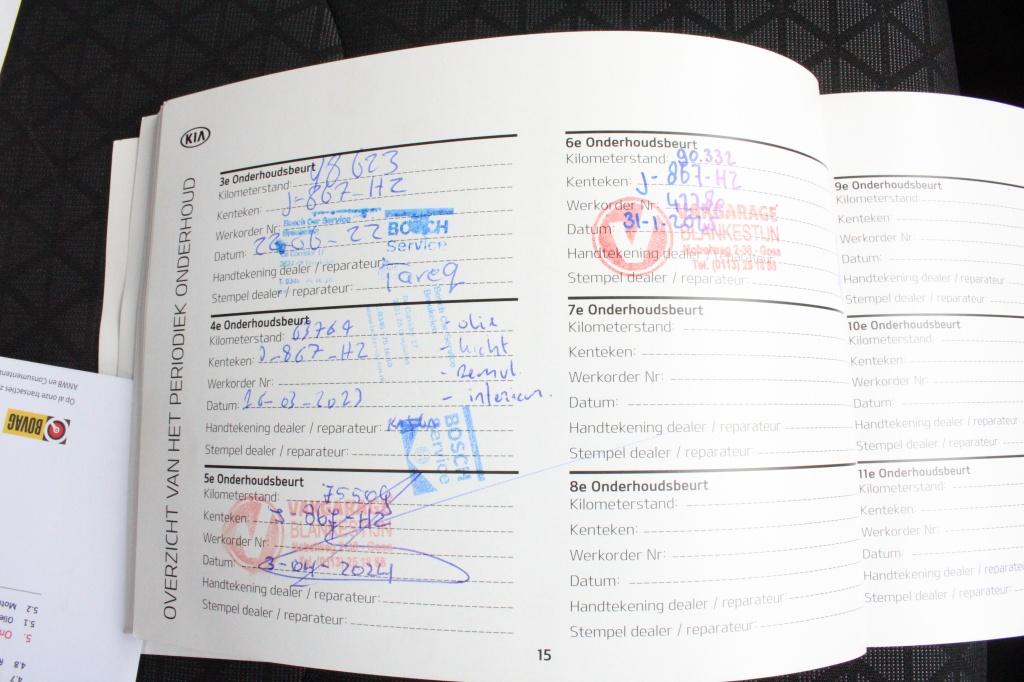 KIA
OVERZICHT VAN HET PERIODIEK ONDERHOUD
3e Onderhoudsbeurt
Kilometerstand: 48623
Kenteken: J-867-HZ
Werkorder Nr:
Datum: 22-06-22
Handtekening dealer / reparateur:
Stempel dealer / reparateur: Tareq
Bosch Car Service
BOSCH
Service
4e Onderhoudsbeurt
Kilometerstand: 63764
Kenteken: J-867-HZ
Werkorder Nr:
Datum: 16-03-2023
Handtekening dealer / reparateur:
Stempel dealer / reparateur:
- olie
- lucht
- remvl.
- interieur.
BOSCH
Service
5e Onderhoudsbeurt
Kilometerstand: 75509
Kenteken: J-867-HZ
Werkorder Nr:
Datum: 3-04-2024
Handtekening dealer / reparateur:
Stempel dealer / reparateur:
VAKGARAGE
BLANKESTIJN
Nobelweg 2-38 - Goes
Tel. (0113) 25 18 88
6e Onderhoudsbeurt
Kilometerstand: 90.332
Kenteken: J-867-HZ
Werkorder Nr: 42780
Datum: 31-1-202
Handtekening dealer / reparateur:
Stempel dealer / reparateur:
VAKGARAGE
BLANKESTIJN
Nobelweg 2-38 - Goes
Tel. (0113) 25 18 88
7e Onderhoudsbeurt
Kilometerstand:
Kenteken:
Werkorder Nr:
Datum:
Handtekening dealer / reparateur:
Stempel dealer / reparateur:
8e Onderhoudsbeurt
Kilometerstand:
Kenteken:
Werkorder Nr:
Datum:
Handtekening dealer / reparateur:
Stempel dealer / reparateur:
15
9e Onderhoudsbeurt
Kilometerstand:
Kenteken:
Werkorder Nr:
Datum:
Handtekening dealer / reparateur:
Stempel dealer / reparateur:
10e Onderhoudsbeurt
Kilometerstand:
Kenteken:
Werkorder Nr:
Datum:
Handtekening dealer / reparateur:
Stempel dealer / reparateur:
11e Onderhoudsbeurt
Kilometerstand:
Kenteken:
Werkorder Nr:
Datum:
Handtekening dealer / reparateur:
Stempel dealer / reparateur:
Op al onze transacties
ANWB en Consumenten
BOVAG
4.7
4.8
5.
5.1 Olie
5.2 Moto